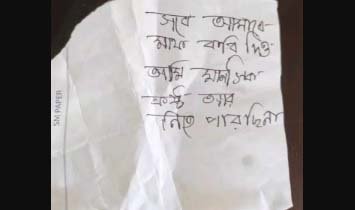 সবে আমাকে
মাফ করি দিও
আমি মানসিক
কষ্ট আর
নিতে পারছিনা
SM PAPER